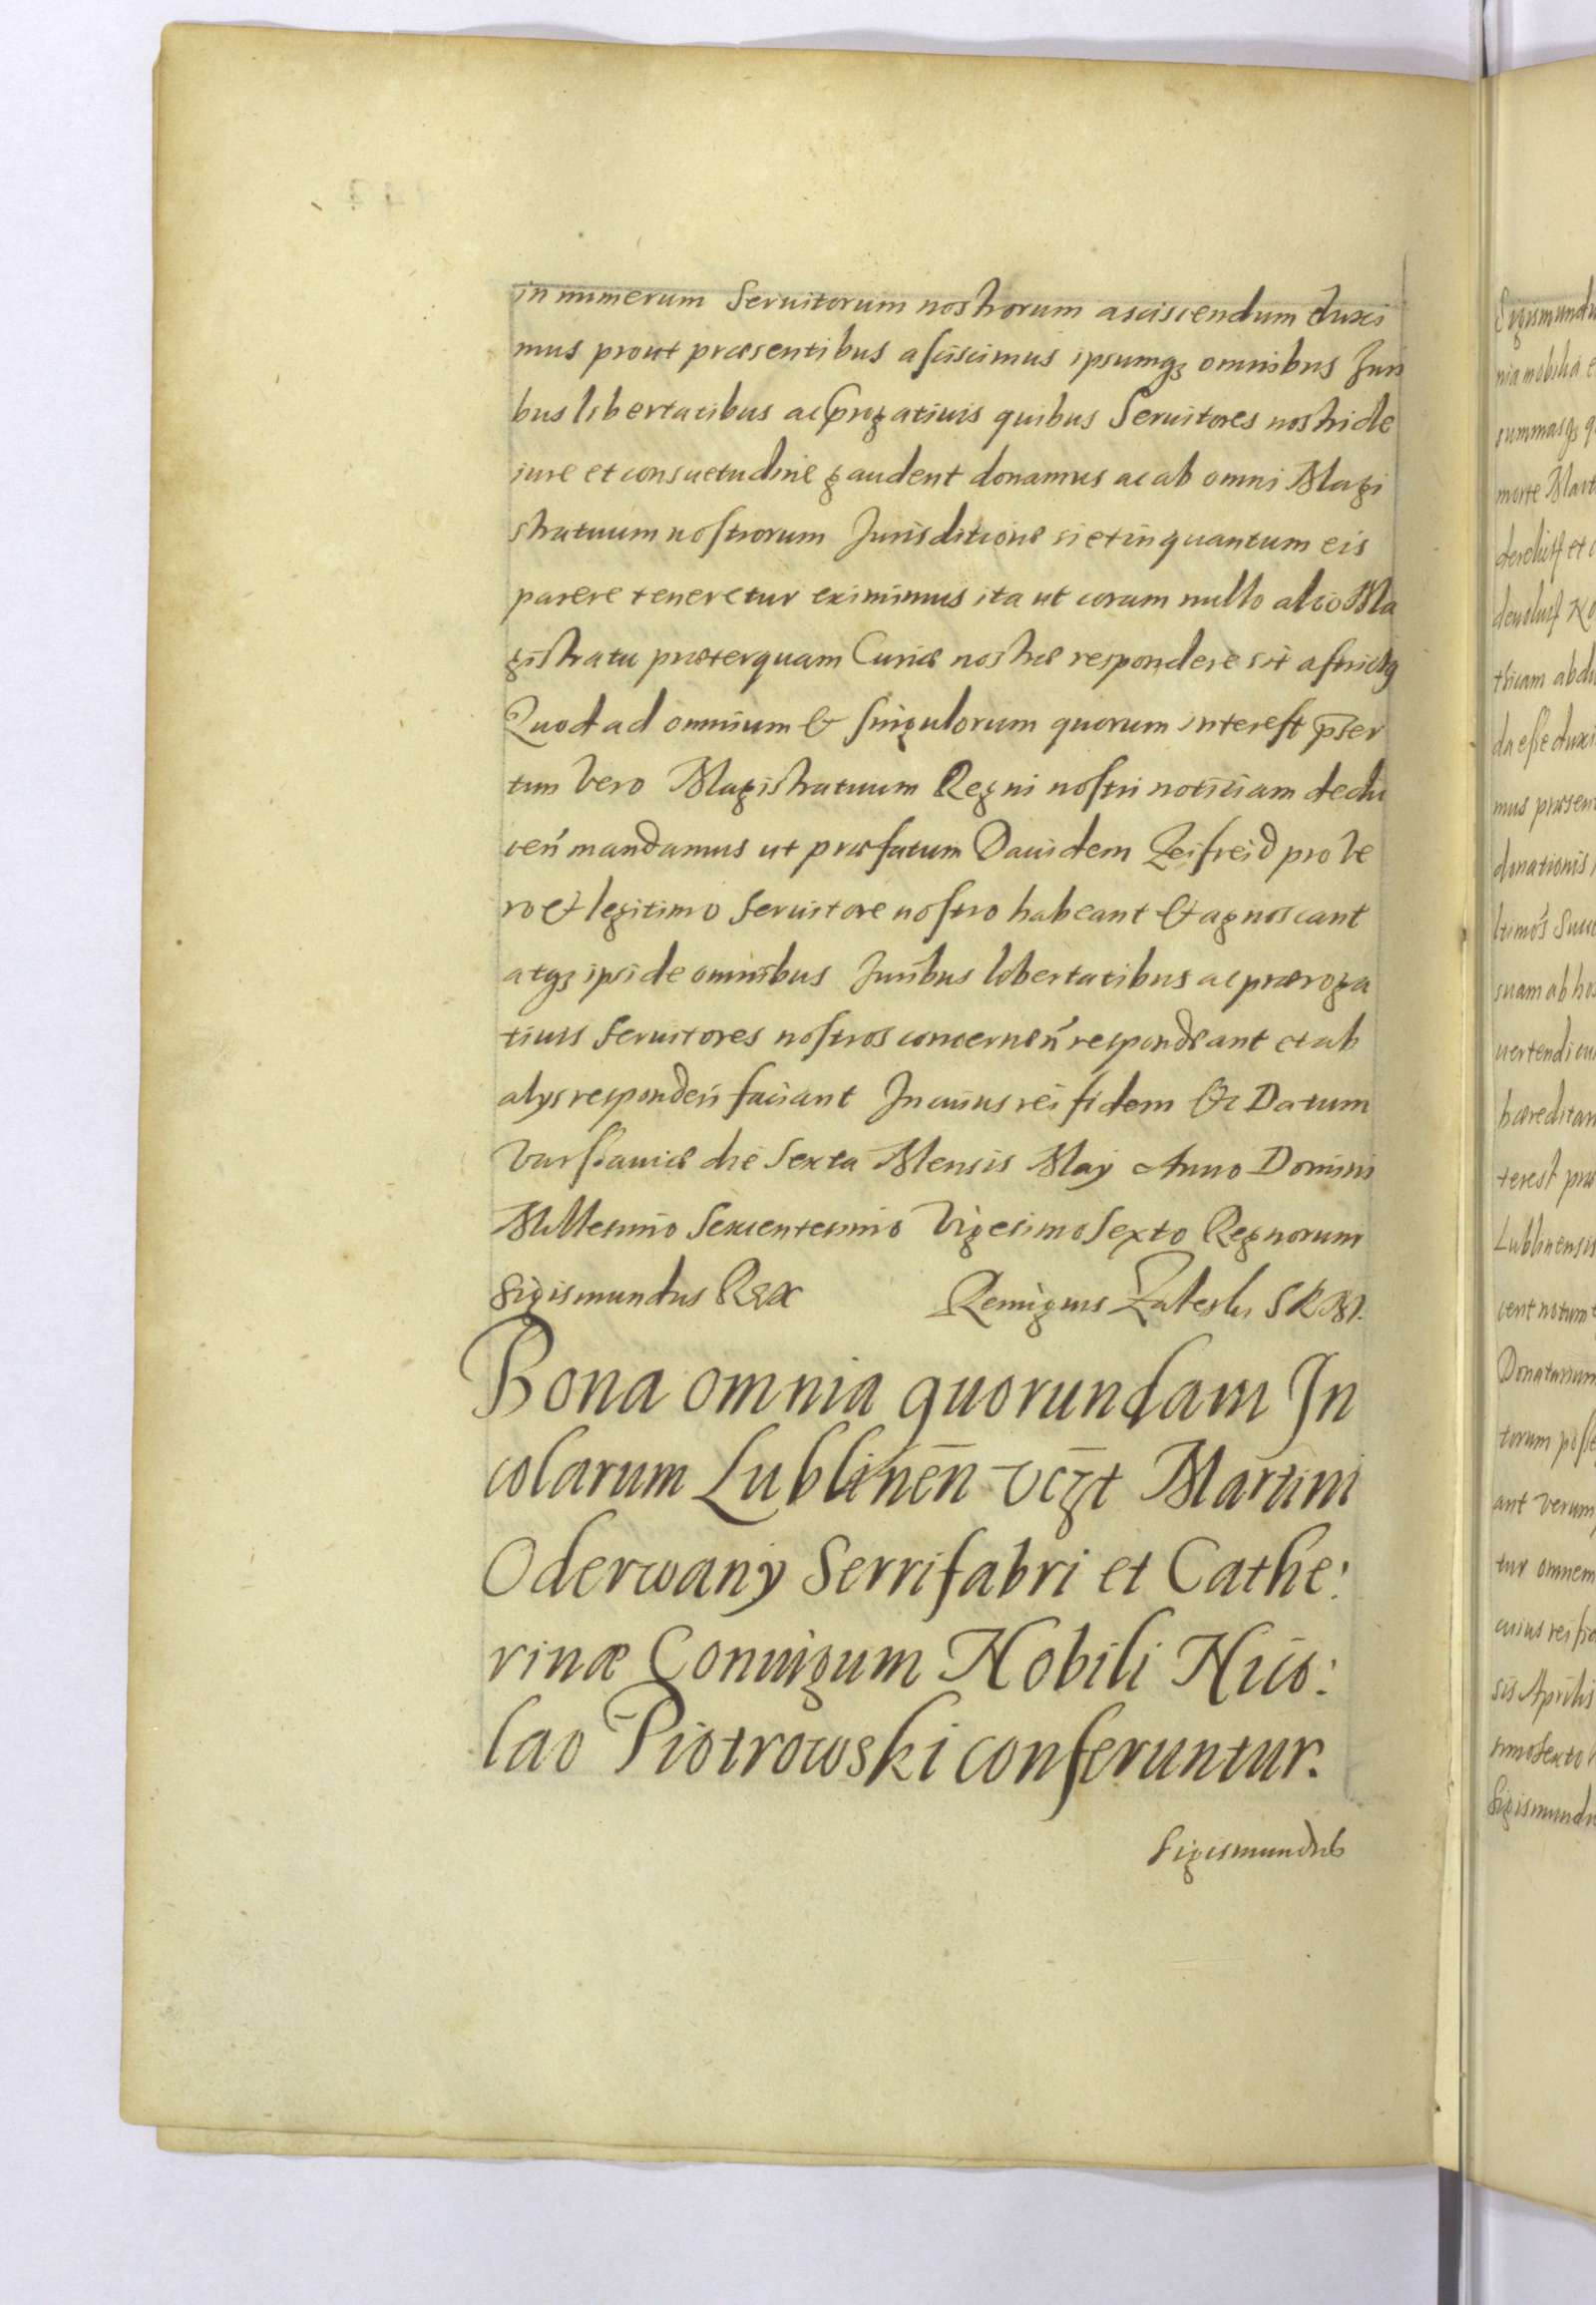 in numerum Seruitorum nostrorum asciscendum duxi
mus prout præsentibus asciscimus ipsumqꝫ omnibus Juri
bus libertatibus ac p̱rogatiuis quibus Seruitores nostri de
iure et consuetudine gaudent donamus ac ab omni Magi
stratuum nostrorum Jurisditione si et in quantum eis
parere teneretur eximimus ita ut coram nullo alio Ma
gistratu præterquam Curiæ nostræ respondere sit astrictꝰ
Quod ad omnium & singulorum quorum interest p̄ser
tim vero Magistratuum Regni nostri noticiam dedu
cen̄ mandamus ut præfatum Dauidem Zeifreid pro ve
ro et legitimo seruitore nostro habeant & agnoscant
atqꝫ ipsi de omnibus Juribus libertatibus ac præroga
tiuis seruitores nostros concernen̄ respondeant et ab
alys responderi faciant In cuius rei fidem &c Datum
Varsauiæ die Sexta Mensis Maÿ Anno Domini
Millesimo Sexcentesimo Vigesimo sexto Regnorum
Sigismundus Rex Remigius Zaleski S R M.
Bona omnia quorundam In
colarum Lublinen̄ vcꝫt Martini
Oderwany Serrifabri et Cathe:
rinæ Coniugum Nobili Nico:
lao Piotrowski conferuntur.
Sigismundus
Sigismundu
nia mobilia e
summasqꝫ q
morte Mart
derelict et c
deuolut No
thicam abdu
da esse duxi
mus præsen
donationis
ltimos Succ
suam ab hos
uertendi cu
hæreditari
terest præ
Lublinensis
cent notum
Donatarium
torum posse
ant verum
tur omnem
cuius rei fid
sis Aprilis
simo sexto
Sigismundu